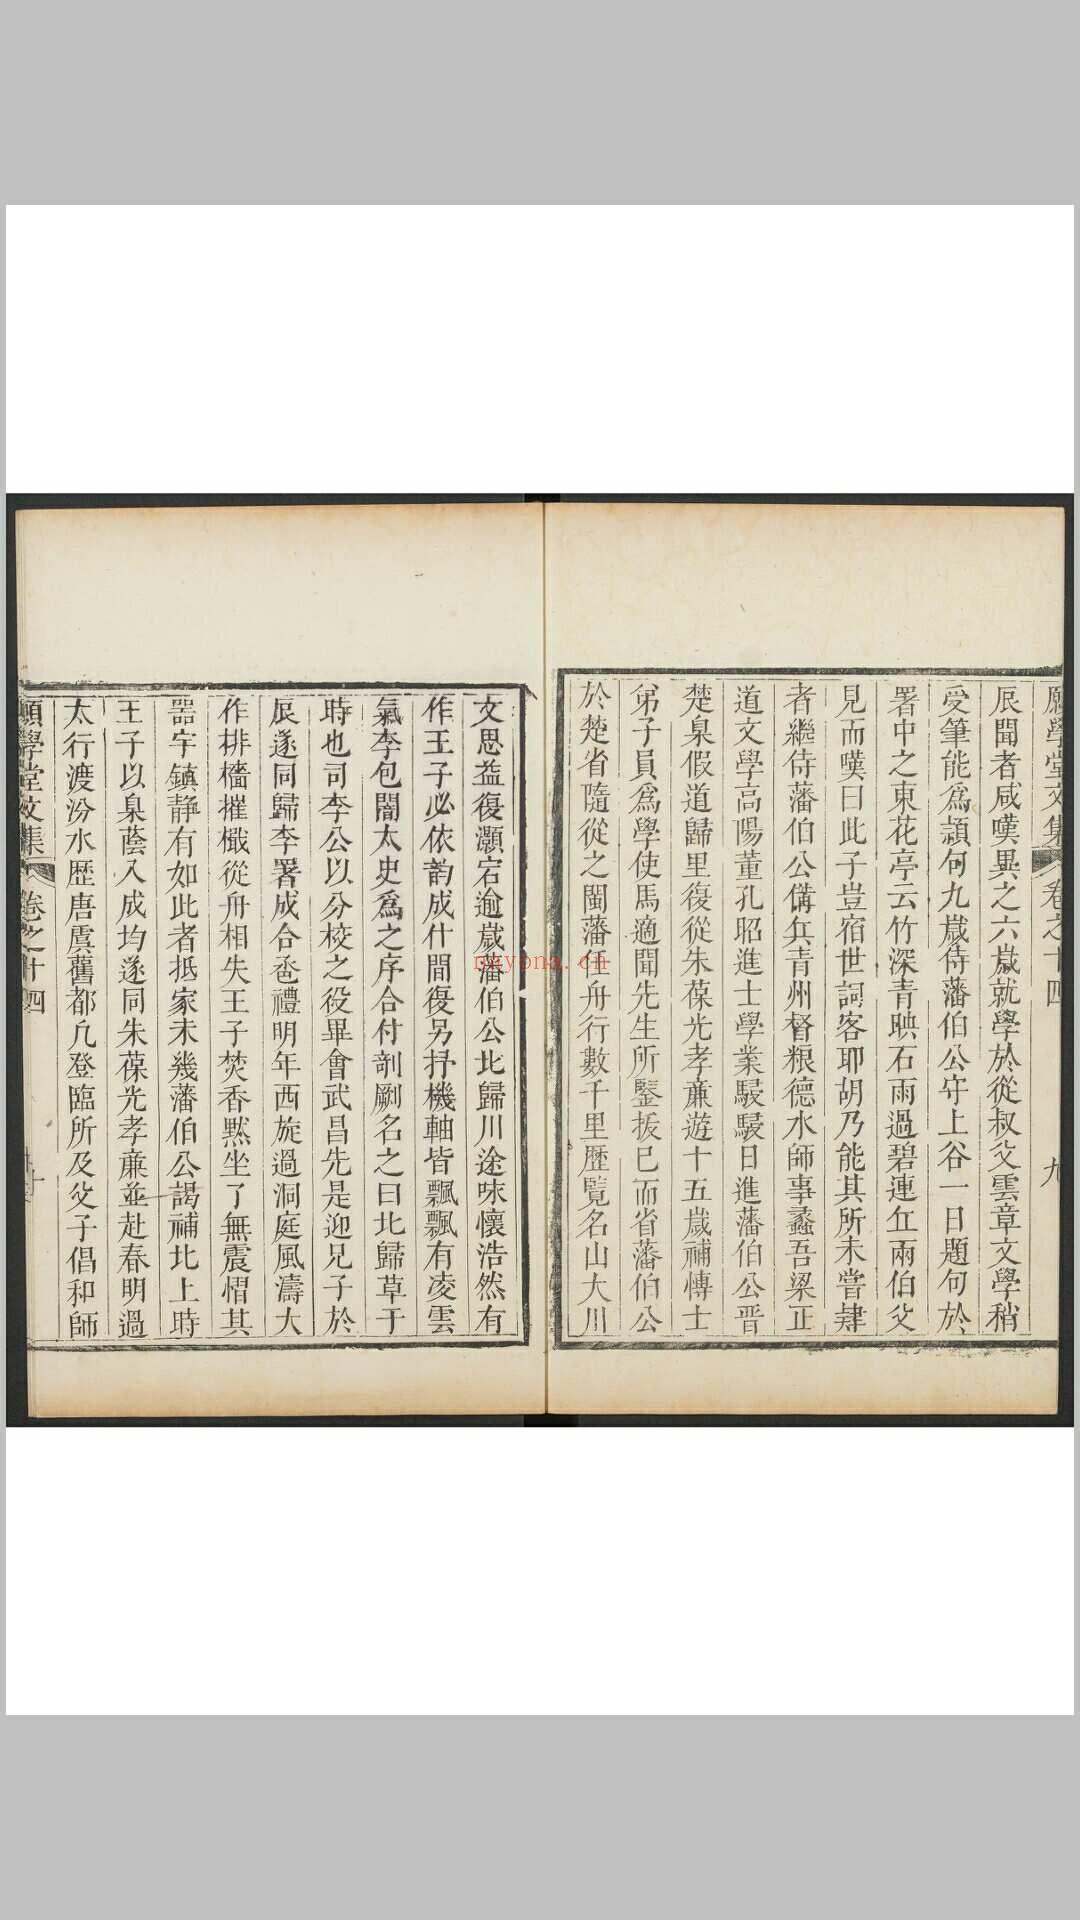 願學堂文集 卷之十四 九
辰聞者咸嘆異之六歲就學於從叔父雲章文學稍
受筆能為頴句九歲侍藩伯公守上谷一日題句於
署中之東花亭云竹深青映石雨過碧連丘兩伯父
見而嘆曰此子豈宿世詞客耶胡乃能其所未嘗肄
者繼侍藩伯公備兵青州督粮德水師事蠡吾梁正
道文學高陽董孔昭進士學業駸駸日進藩伯公晋
楚臬假道歸里復從朱葆光孝亷遊十五歲補博士
弟子員為學使馬適聞先生所鑒拔已而省藩伯公
於楚省隨從之閩藩任舟行數千里歷覽名山大川
文思益復灝宕逾歲藩伯公北歸川途味懷浩然有
作王子必依韵成什間復另抒機軸皆飄飄有凌雲
氣李包闇太史為之序合付剞劂名之曰北歸草于
時也司李公以分校之役畢會武昌先是迎兄子於
辰遂同歸李署成合巹禮明年西旋過洞庭風濤大
作排檣摧檝從舟相失王子焚香黙坐了無震慴其
器宇鎮静有如此者抵家未幾藩伯公謁補北上時
王子以臬蔭入成均遂同朱葆光孝亷並赴春明過
太行渡汾水歷唐虞舊都凡登臨所及父子倡和師
願學堂文集 卷之十四 十
nayona.cn